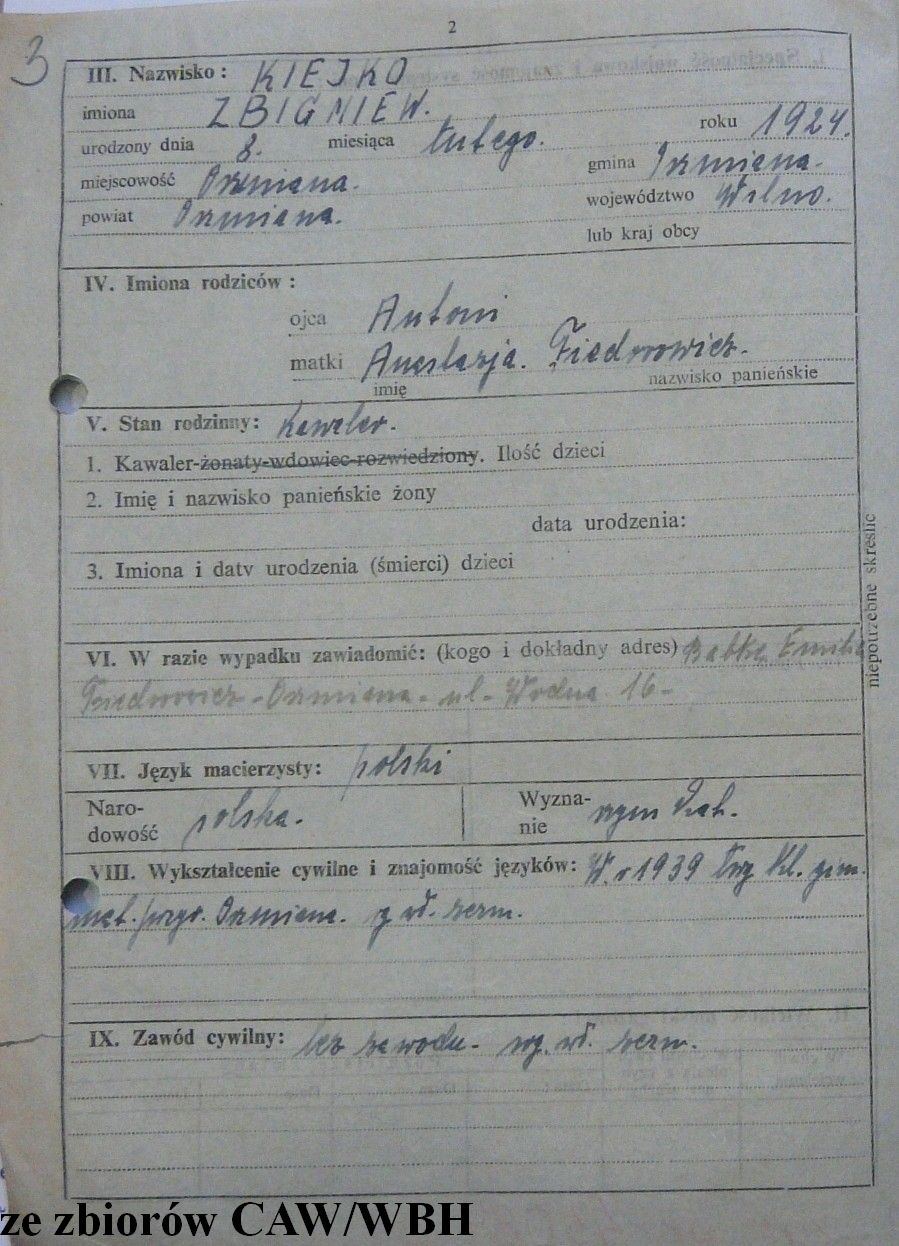 2
3
III. Nazwisko: KIEJKO
imiona ZBIGNIEW.
urodzony dnia 8. miesiąca lutego. roku 1924.
miejscowość Oszmiana. gmina Oszmiana.
powiat Oszmiana. województwo Wilno.
lub kraj obcy
IV. Imiona rodziców:
ojca Antoni
matki Anastazja. Fiedorowicz.
imię nazwisko panieńskie
V. Stan rodzinny: Kawaler.
1. Kawaler-żonaty-wdowiec-rozwiedziony. Ilość dzieci
2. Imię i nazwisko panieńskie żony
data urodzenia:
3. Imiona i daty urodzenia (śmierci) dzieci
niepotrzebne skreślić
VI. W razie wypadku zawiadomić: (kogo i dokładny adres) Babka Emilia
Fiedorowicz - Oszmiana - ul - Wodna 16 -
VII. Język macierzysty: polski
Naro-
dowość polska.
Wyzna-
nie rzym kat.
VIII. Wykształcenie cywilne i znajomość języków: W. r 1939 kl. gim.
Oszmiana. wł. zezn.
IX. Zawód cywilny: bez zawodu - wg. wł. zezn.
ze zbiorów CAW/WBH